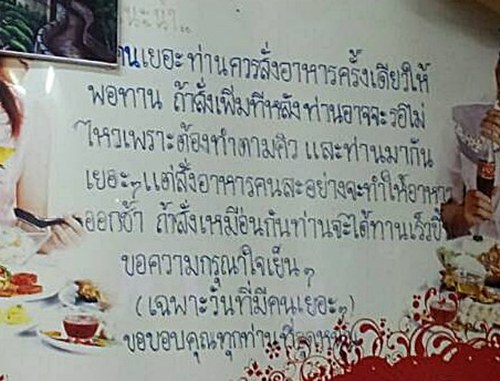 แนะนำ..
ทานเยอะท่านควรสั่งอาหารครั้งเดียวให้
พอทาน ถ้าสั่งเพิ่มทีหลังท่านอาจจะรอไม่
ไหวเพราะต้องทำตามคิว และท่านมากัน
เยอะๆแต่สั่งอาหารคนละอย่างจะทำให้อาหาร
ออกช้า ถ้าสั่งเหมือนกันท่านจะได้ทานเร็วขึ้น
ขอความกรุณาใจเย็นๆ
(เฉพาะวันที่มีคนเยอะๆ)
ขอขอบคุณทุกท่าน